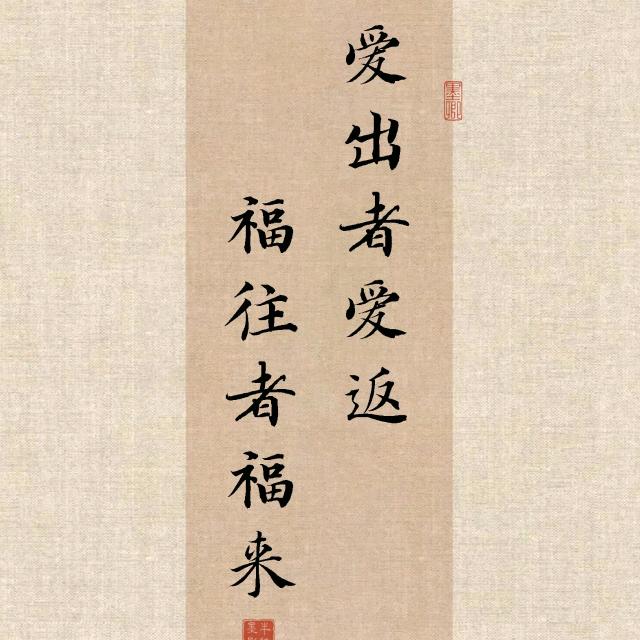 愛出者愛返
福往者福来